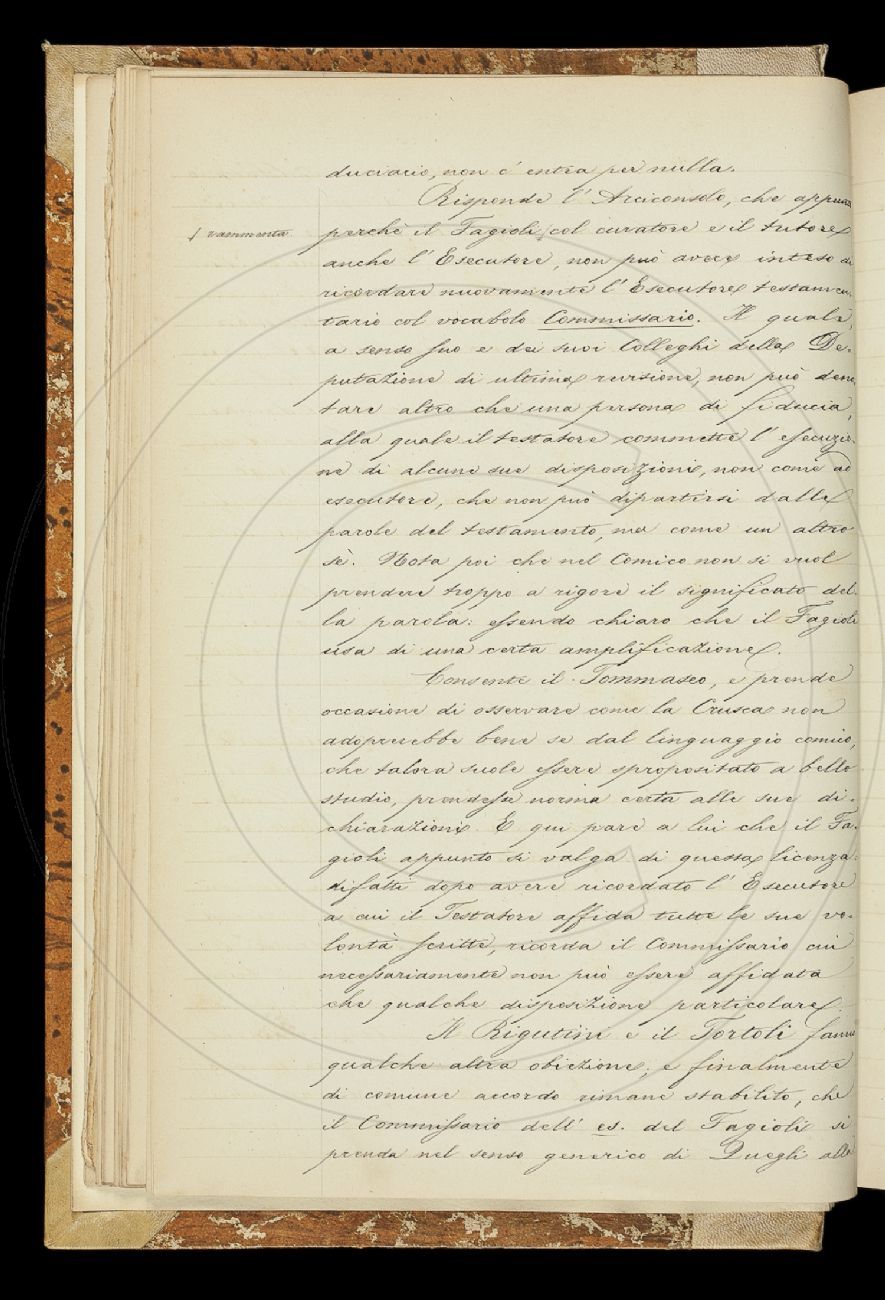 duciario, non c'entra per nulla.
Risponde l'Arciconsolo, che appunto
∫ rammenta
perchè il Fagioli ∫ col curatore e il tutore
anche l'Esecutore, non può avere inteso di
ricordare nuovamente l'Esecutore testamen-
tario col vocabolo Commissario. Il quale,
a senso suo e dei suoi Colleghi della De-
putazione di ultima revisione, non può deno-
tare altro che una persona di fiducia,
alla quale il testatore commette l'esecuzio-
ne di alcune sue disposizioni, non come ad
esecutore, che non può dipartirsi dalle
parole del testamento, ma come un altro
sè. Nota poi che nel Comico non si vuol
prendere troppo a rigore il significato del-
la parola: essendo chiaro che il Fagioli
usa di una certa amplificazione.
Consente il Tommaseo, e prende
occasione di osservare come la Crusca non
adoprerebbe bene se dal linguaggio comico,
che talora suole essere spropositato a bello
studio, prendesse norma certa alle sue di-
chiarazioni. E qui pare a lui che il Fa-
gioli appunto si valga di questa licenza:
difatti dopo avere ricordato l'Esecutore
a cui il Testatore affida tutte le sue vo-
lontà scritte, ricorda il Commissario cui
necessariamente non può essere affidata
che qualche disposizione particolare.
Il Rigutini e il Tortoli fanno
qualche altra obiezione; e finalmente
di comune accordo rimane stabilito, che
il Commissario dell'es. del Fagioli si
prenda nel senso generico di Quegli alla